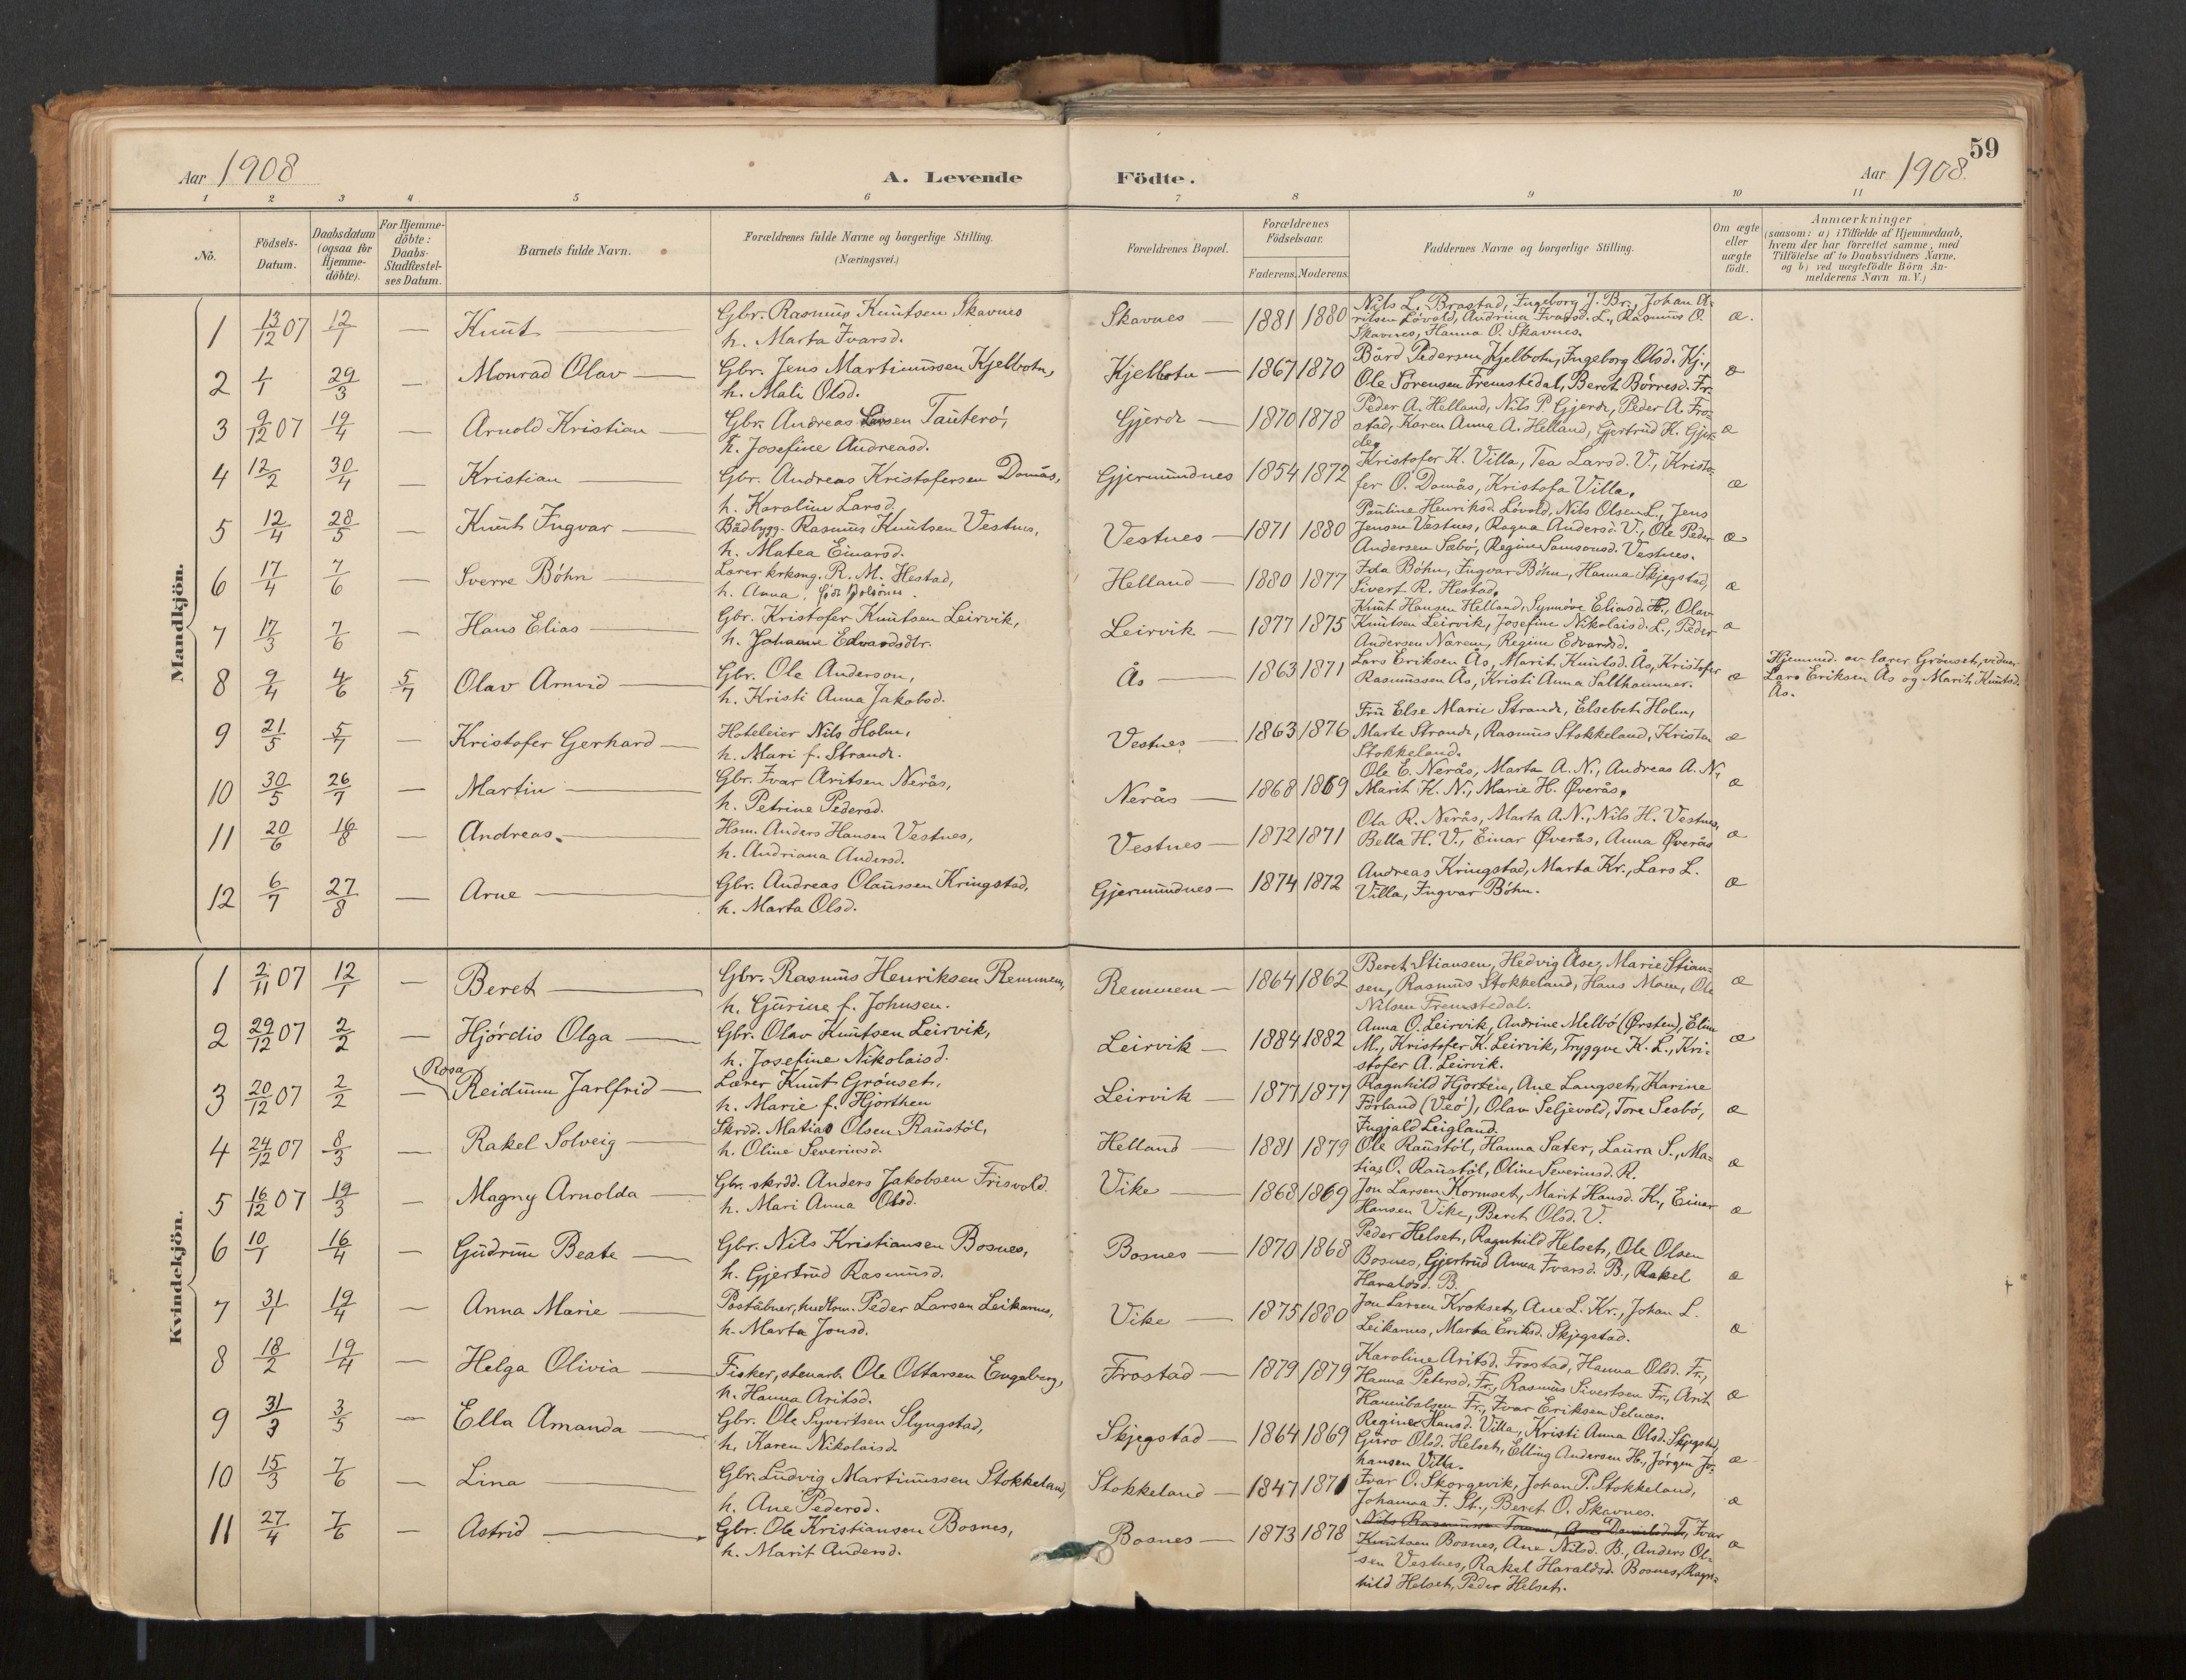 59
Aar 1908
A. Levende Födte.
Aar 1908.
1 2 3 4 5 6 7 8 9 10 11
No. Födsels-Datum. Daabsdatum (ogsaa for Hjemme-döbte). For Hjemme-döbte: Daabs-Stadfæstel-ses Datum. Barnets fulde Navn. Forældrenes fulde Navne og borgerlige Stilling. (Næringsvei.) Forældrenes Bopæl. Forældrenes Födselsaar. Faderens. Moderens. Faddernes Navne og borgerlige Stilling. Om ægte eller uægte födt.
Anmærkninger
(saasom: a) i Tilfælde af Hjemmedaab,
hvem der har forrettet samme, med
Tilföielse af to Daabsvidners Navne.
og b) ved uægtefödte Börn An-
melderens Navn m.V.)
Mandkjön.
1 13/12 07 12/1 — Knut — Gbr. Rasmus Knutsen Skavnes
h. Marta Ivarsd.
Skavnes — 1881 1880
Nils L. Brastad, Ingeborg J. Br., Johan A-
ritsen Lövold, Andrina Ivarsd. L., Rasmus O.
Skavnes, Hanna O. Skavnes.
æ.
2 1/1 29/3 — Monrad Olav — Gbr. Jens Martinussen Kjelbotn,
h. Mali Olsd.
Kjelbotn — 1867 1870
Bård Pedersen Kjelbotn, Ingeborg Olsd. Kj.,
Ole Sörensen Fremstedal, Beret Börresd. Fr.
æ
3 9/12 07 19/4 — Arnold Kristian — Gbr. Andreas Larsen Tauterö,
h. Josefine Andreasd.
Gjerde — 1870 1878
Peder A. Helland, Nils P. Gjerde, Peder A. Fro-
stad, Karen Anna A. Helland, Gjertrud K. Gjer-
de.
æ
4 12/2 30/4 — Kristian — Gbr. Andreas Kristofersen Domås,
h. Karoline Larsd.
Gjermundnes 1854 1872
Kristofer K. Villa, Tea Larsd. V., Kristo-
fer O. Domås, Kristofa Villa.
æ
5 12/4 28/5 — Knut Ingvar — Bådbygg. Rasmus Knutsen Vestnes,
h. Matea Einarsd.
Vestnes — 1871 1880
Pauline Henriksd. Lövold, Nils Olsen L., Jens
Jensen Vestnes, Ragna Andersd. V., Ole Peder
Andersen Sæbö, Regine Samsonsd. Vestnes.
æ
6 17/4 7/6 — Sverre Böhn — Lærer krksng. R. M. Hestad,
h. Anna,
Helland — 1880 1877
Ida Böhn, Ingvar Böhn, Hanna Skjegstad,
Sivert R. Hestad.
æ
7 17/3 7/6 — Hans Elias — Gbr. Kristofer Knutsen Leirvik,
h. Johanne Edvardsdtr.
Leirvik — 1877 1875
Knut Hansen Helland, Synnöve Eliasd. H., Olav
Knutsen Leirvik, Josefine Nikolaisd. L., Peder
Andersen Nærem, Regine Edvardsd.
æ
8 9/4 4/6 5/7 Olav Arnvid — Gbr. Ole Anderson,
h. Kristi Anna Jakobsd.
Ås — 1863 1871
Lars Eriksen Ås, Marit Knutsd. Ås, Kristofer
Rasmussen Ås, Kristi Anna Salthammer.
æ
Hjemmed. av lærer Grönset, vidner
Lars Eriksen Ås og Marit Knutsd.
Ås.
9 21/5 5/7 — Kristofer Gerhard — Hoteleier Nils Holm,
h. Mari f. Strande.
Vestnes — 1863 1876
Fru Else Marie Strande, Elsebet Holm,
Marte Strande, Rasmus Stokkeland, Kristen
Stokkeland.
æ
10 30/5 26/7 — Martin — Gbr. Ivar Aritsen Nerås,
h. Petrine Pedersd.
Nerås — 1868 1869
Ole E. Nerås, Marta A. N., Andreas A. N.,
Marit K. N., Marie H. Øverås.
æ
11 20/6 16/8 — Andreas. — Hsm. Anders Hansen Vestnes,
h. Andriana Andersd.
Vestnes — 1872 1871
Ola R. Nerås, Marta A. N., Nils H. Vestnes,
Bella H. V., Einar Øverås, Anna Øverås
æ
12 6/7 27/8 — Arne — Gbr. Andreas Olaussen Kringstad,
h. Marta Olsd.
Gjermundnes — 1874 1872
Andreas Kringstad, Marta Kr., Lars L.
Villa, Ingvar Böhn.
æ
Kvindekjön.
1 2/11 07 12/1 — Beret — Gbr. Rasmus Henriksen Remmem,
h. Gurine f. Johnsen.
Remmem — 1864 1862
Beret Stiansen, Hedvig Åse, Marie Stian-
sen, Rasmus Stokkeland, Hans Moen, Ole
Nilsen Fremstedal.
æ
2 29/12 07 2/2 — Hjördis Olga — Gbr. Olav Knutsen Leirvik,
h. Josefine Nikolaisd.
Leirvik — 1884 1882
Anna O. Leirvik, Andrine Melbö (Ørsten), Eline
M., Kristofer K. Leirvik, Tryggve K. L., Kri-
stofer A. Leirvik.
æ
3 20/12 07 2/2 — Rosa
Reidunn Jarlfrid — Lærer Knut Grönset,
h. Marie f. Hjorthen
Leirvik — 1877 1877
Ragnhild Hjorten, Ane Langset, Karine
Förland (Veö), Olav Seljevold, Tore Sesbö,
Ingjald Leigland.
æ
4 24/12 07 8/3 — Rakel Solveig — Skrdd. Matias Olsen Raustöl,
h. Oline Severinsd.
Helland — 1881 1879
Ole Raustöl, Hanna Sæter, Laura S., Ma-
tias O. Raustöl, Oline Severinsd. R.
æ
5 16/12 07 19/3 — Magny Arnolda — Gbr. skrdd. Anders Jakobsen Frisvold.
h. Mari Anna Olsd.
Vike — 1868 1869
Jon Larsen Kormset, Marit Hansd. K., Einar
Hansen Vike, Beret Olsd. V.
æ
6 10/1 16/4 — Gudrun Beate — Gbr. Nils Kristiansen Bosnes,
h. Gjertrud Rasmusd.
Bosnes — 1870 1868
Peder Helset, Ragnhild Helset, Ole Olsen
Bosnes, Gjertrud Anna Ivarsd. B., Rakel
Haraldsd. B.
æ
7 31/1 19/4 — Anna Marie — Poståbner, Peder Larsen Leikarnes,
h. Marta Jonsd.
Vike — 1875 1880
Jon Larsen Krokset, Ane L. Kr., Johan L.
Leikarnes, Marta Eriksd. Skjegstad.
æ
8 18/2 19/4 — Helga Olivia — Fisker, stenarb. Ole Ottarsen Engeberg,
h. Hanna Aritsd.
Frostad — 1879 1879
Karoline Aritsd. Frostad, Hanna Olsd. Fr.,
Hanna Petersd. Fr., Rasmus Sivertsen Fr., Arit
Hannibalsen Fr., Ivar Eriksen Selnes.
æ
9 31/3 3/5 — Ella Amanda — Gbr. Ole Syvertsen Slyngstad,
h. Karen Nikolaisd.
Skjegstad — 1864 1869
Regine Hansd. Villa, Kristi Anna Olsd. Skjegstad,
Guro Olsd. Helset, Elling Andersen H., Jörgen Jo-
hansen Villa.
æ
10 15/3 7/6 — Lina — Gbr. Ludvig Martinussen Stokkeland,
h. Ane Pedersd.
Stokkeland — 1847 1871
Ivar O. Skorgevik, Johan P. Stokkeland,
Johanna J. St., Beret O. Skavnes.
æ
11 27/4 7/6 — Astrid — Gbr. Ole Kristiansen Bosnes,
h. Marit Andersd.
Bosnes — 1873 1878
Nils Rasmussen Ivar
Knutsen Bosnes, Ane Nilsd. B., Anders Ol-
sen Vestnes, Rakel Haraldsd. Bosnes, Ragn-
hild Helset, Peder Helset.
æ